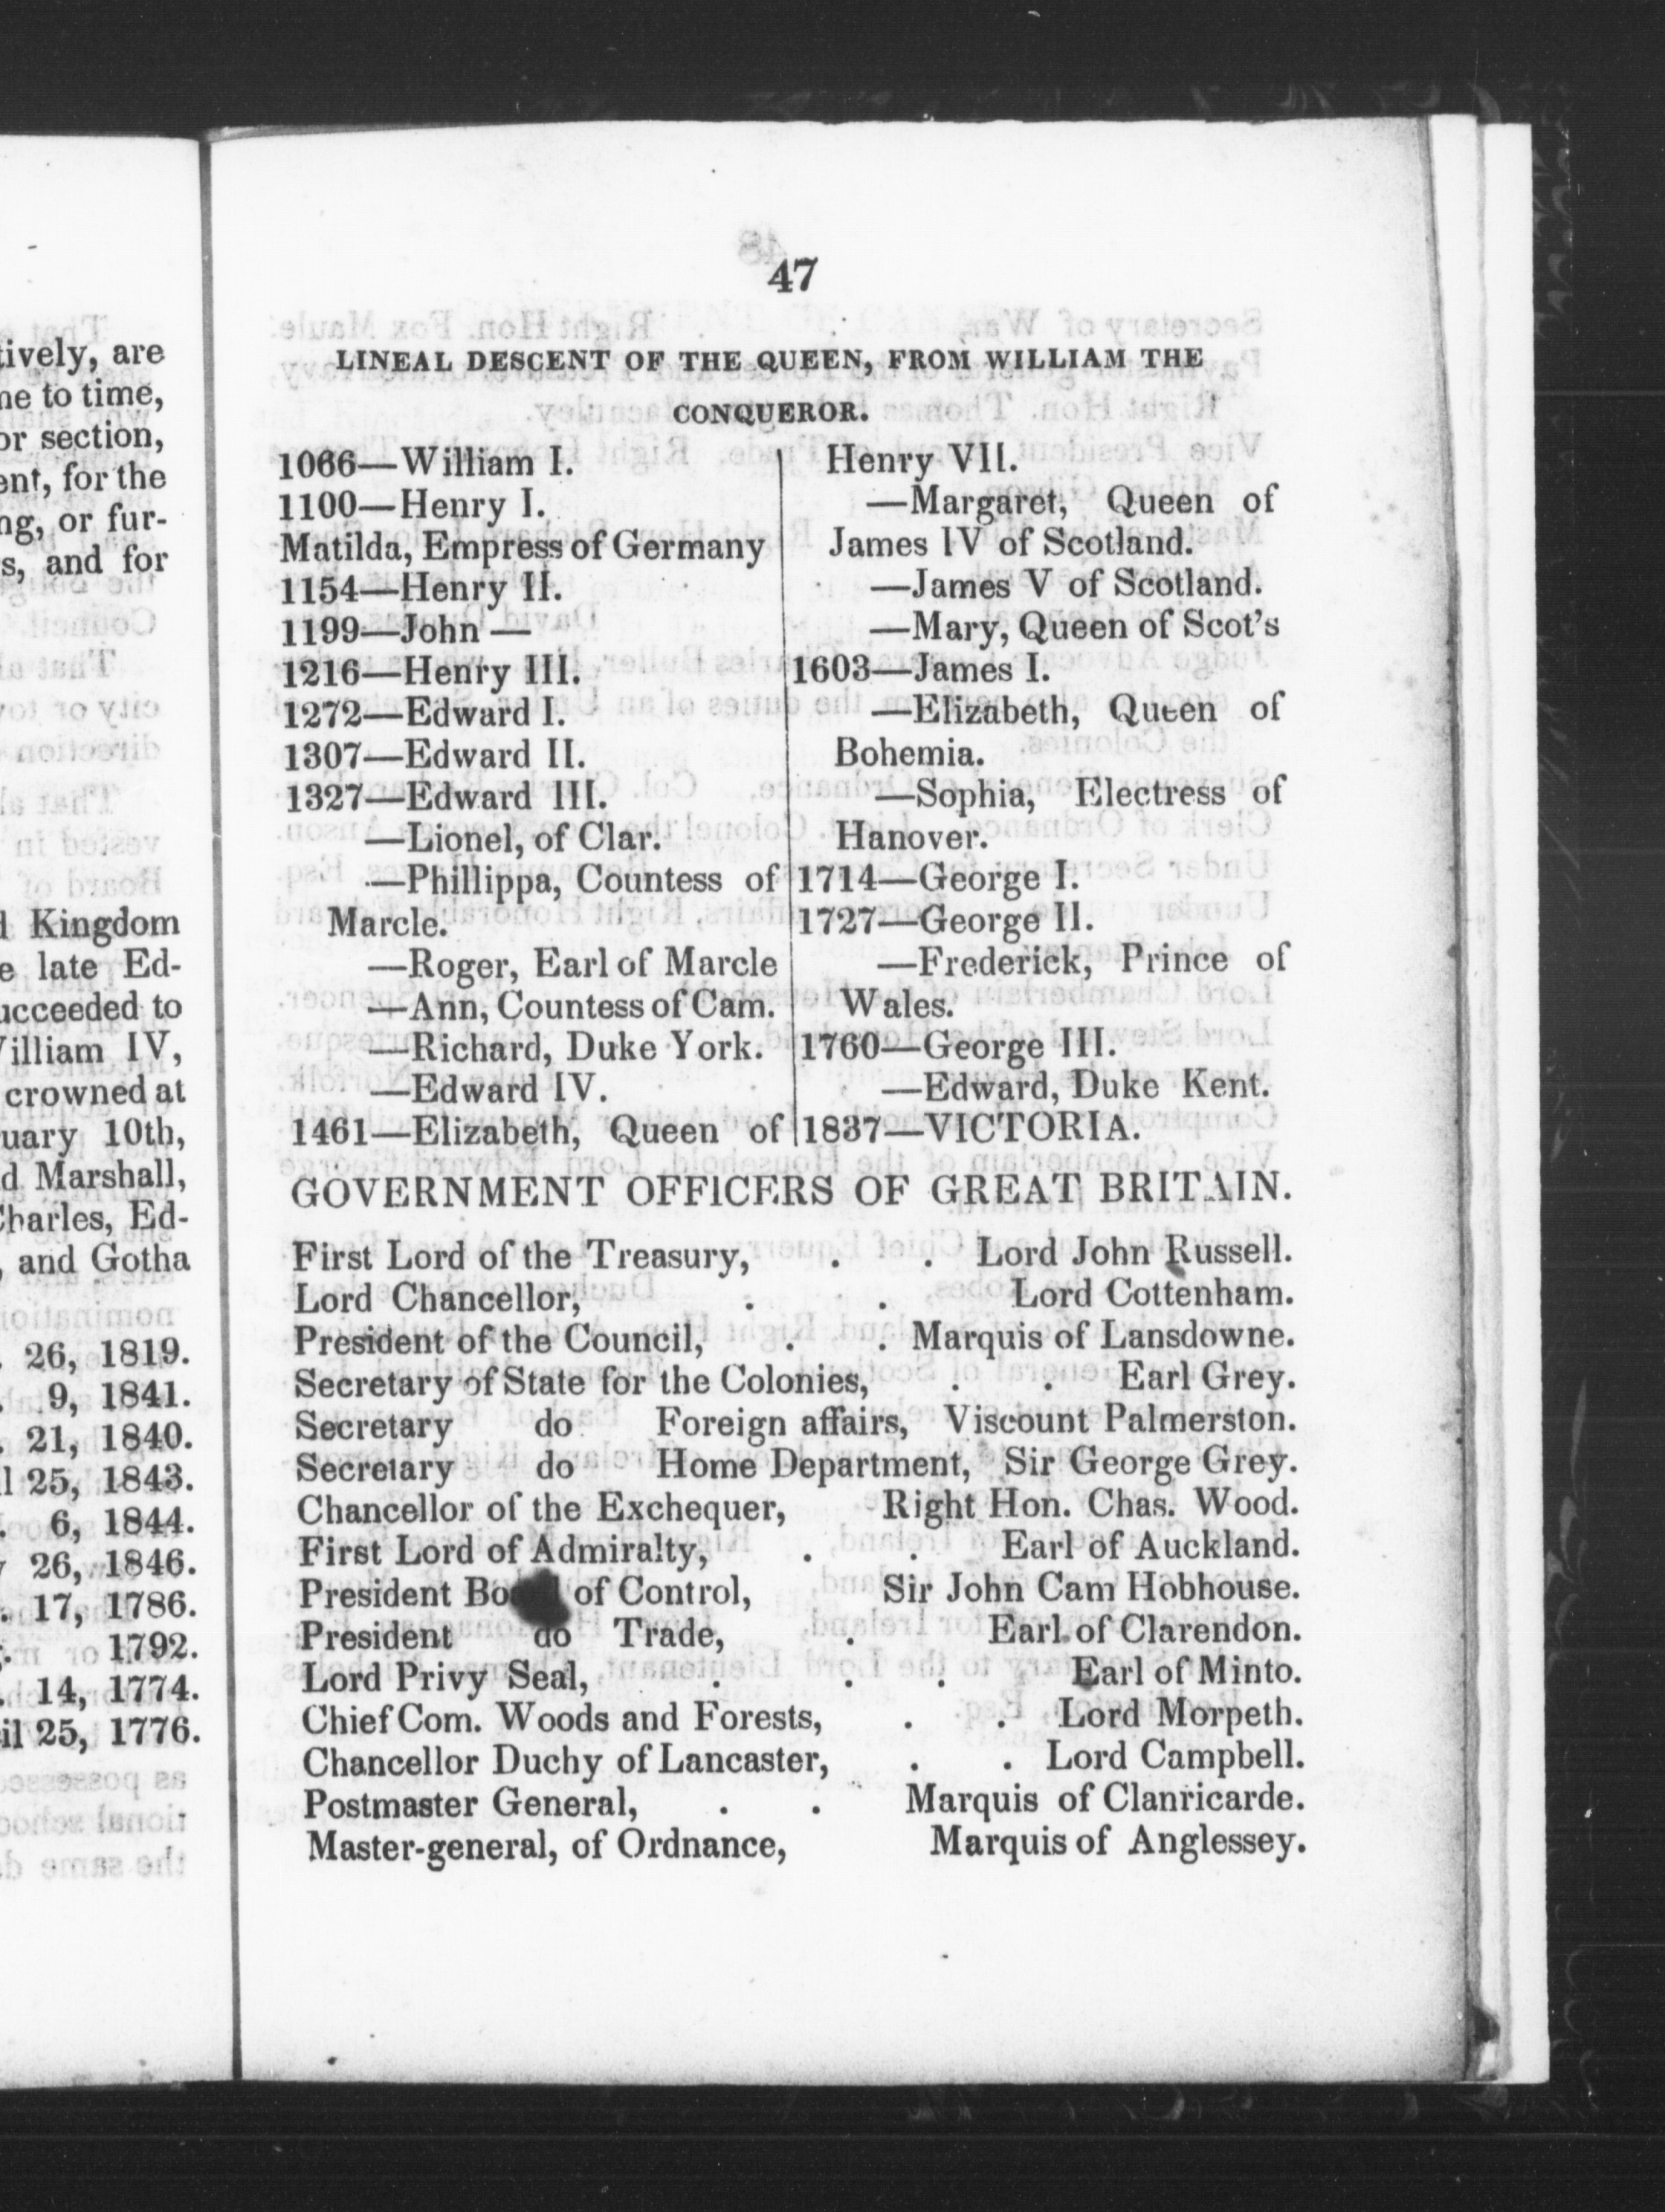 tively, are
ne to time,
or section,
ent, for the
ng, or fur-
s, and for
d Kingdom
e late Ed-
ucceeded to
William IV,
crowned at
uary 10th,
d Marshall,
Charles, Ed-
, and Gotha
. 26, 1819.
. 9, 1841.
. 21, 1840.
l 25, 1843.
. 6, 1844.
y 26, 1846.
. 17, 1786.
. 1792.
. 14, 1774.
il 25, 1776.
47
LINEAL DESCENT OF THE QUEEN, FROM WILLIAM THE
CONQUEROR.
1066—William I.
1100—Henry I.
Matilda, Empress of Germany
1154—Henry II.
1199—John—
1216—Henry III.
1272—Edward I.
1307—Edward II.
1327—Edward III.
—Lionel, of Clar.
—Phillippa, Countess of
Marcle.
—Roger, Earl of Marcle
—Ann, Countess of Cam.
—Richard, Duke York.
—Edward IV.
1461—Elizabeth, Queen of
Henry VII.
—Margaret, Queen of
James IV of Scotland.
—James V of Scotland.
—Mary, Queen of Scot's
1603—James I.
—Elizabeth, Queen of
Bohemia.
—Sophia, Electress of
Hanover.
1714—George I.
1727—George II.
—Frederick, Prince of
Wales.
1760—George III.
—Edward, Duke Kent.
1837—VICTORIA.
GOVERNMENT OFFICERS OF GREAT BRITAIN.
First Lord of the Treasury, . . Lord John Russell.
Lord Chancellor, . . Lord Cottenham.
President of the Council, . . Marquis of Lansdowne.
Secretary of State for the Colonies, . . Earl Grey.
Secretary do Foreign affairs, Viscount Palmerston.
Secretary do Home Department, Sir George Grey.
Chancellor of the Exchequer, Right Hon. Chas. Wood.
First Lord of Admiralty, . . Earl of Auckland.
President of Control, Sir John Cam Hobhouse.
President do Trade, . Earl of Clarendon.
Lord Privy Seal, . . . Earl of Minto.
Chief Com. Woods and Forests, . . Lord Morpeth.
Chancellor Duchy of Lancaster, . . Lord Campbell.
Postmaster General, . . Marquis of Clanricarde.
Master-general, of Ordnance, Marquis of Anglessey.